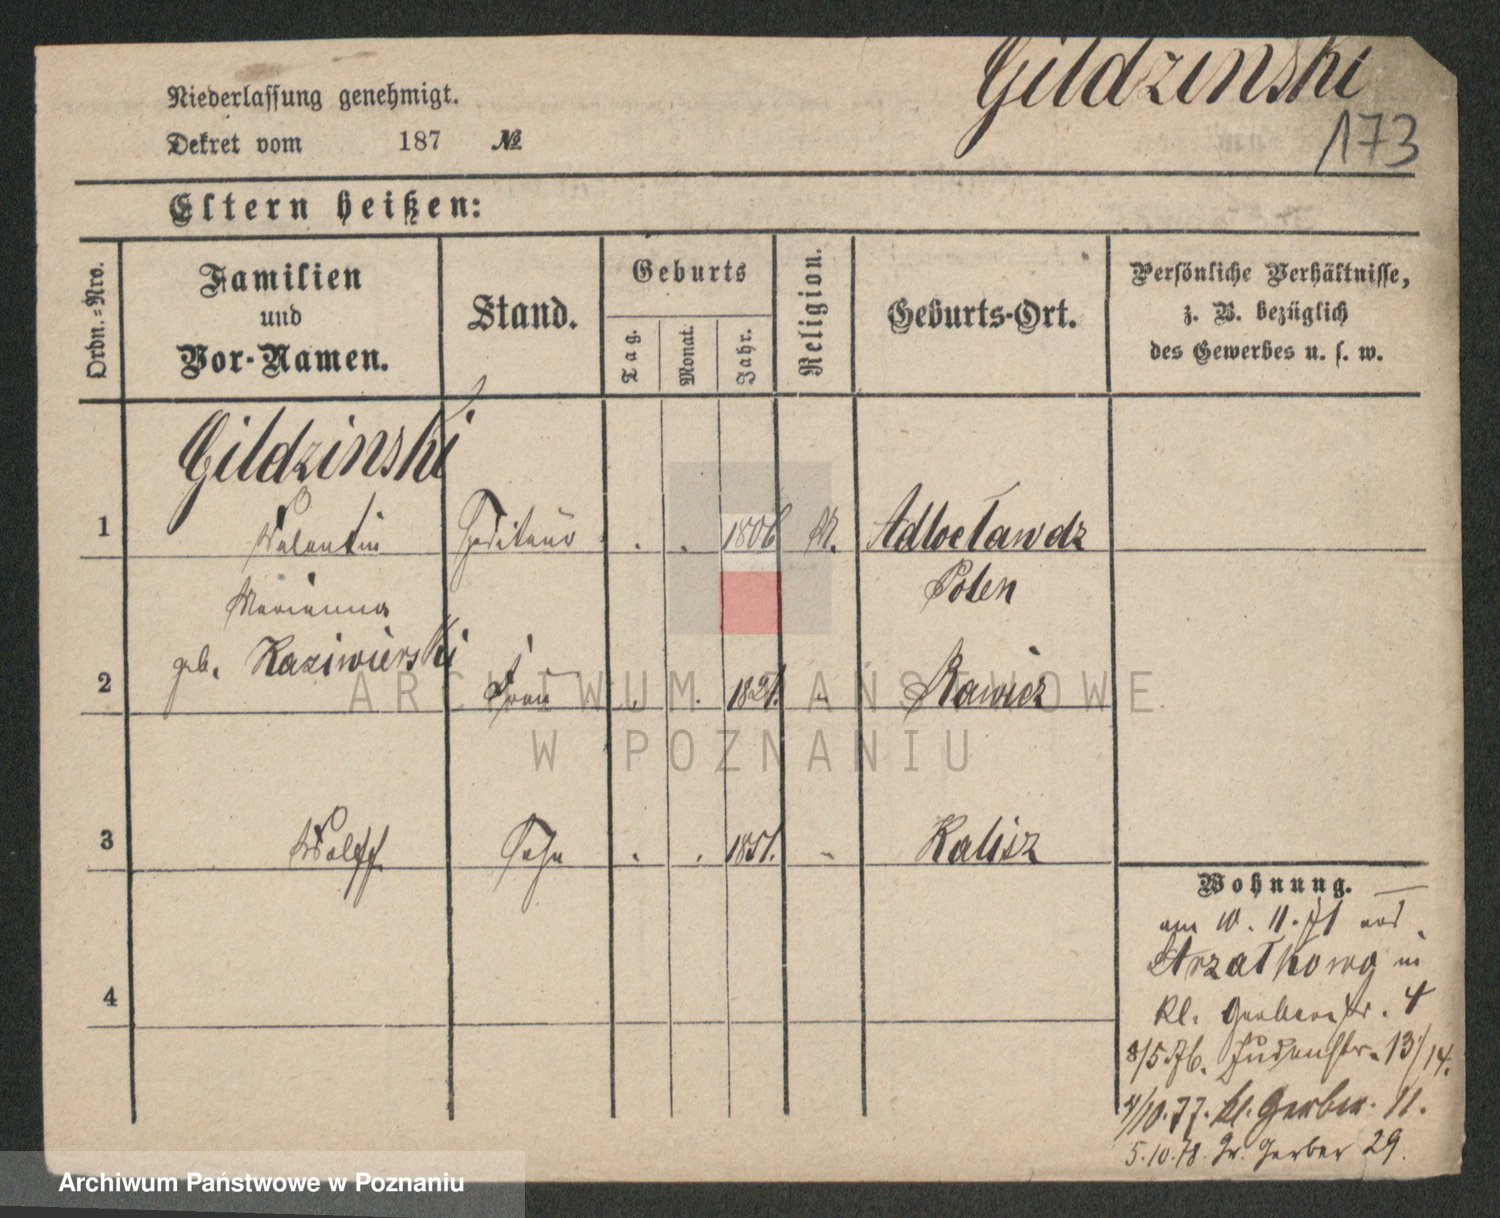 Gildzinski
173
Niederlassung genehmigt.
Dekret vom 187 №
Eltern heißen:
Ordn.-Nro.
Familien
und
Vor-Namen.
Stand.
Geburts
Tag.
Monat.
Jahr.
Religion.
Geburts-Ort.
Persönliche Verhältnisse,
z. B. bezüglich
des Gewerbes u. s. w.
Gildzinski
1 Valentin 1806 K.
Polen
Marianna
geb. Kaziwierski
2 Frau 1821. " Rawicz
3 Wolff Sohn 1851. " Kalisz
4
Wohnung.
am 10. 11. 71 aus
Strzalkowo in
kl. Gerberstr. 4
8/5 76. Judenstr. 13/14.
4/10. 77. kl. Gerber. 11.
5.10.78. Gr. Gerber 29.
ARCHIWUM PAŃSTWOWE
W POZNANIU
Archiwum Państwowe w Poznaniu